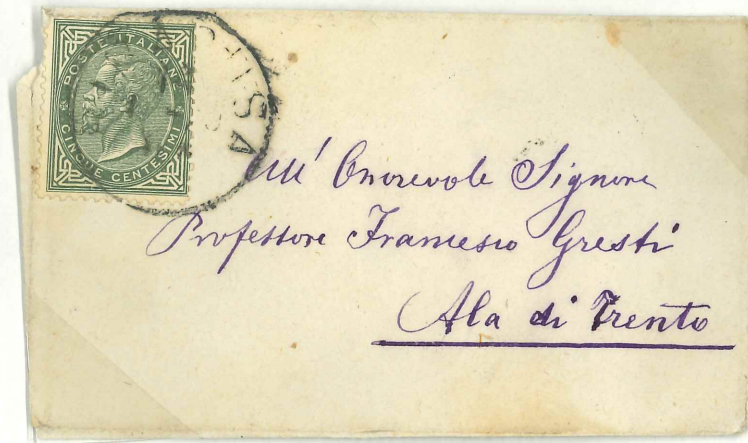 POSTE ITALIANE
CINQUE CENTESIMI
All' Onorevole Signore
Professore Francesco Gresti
Ala di Trento